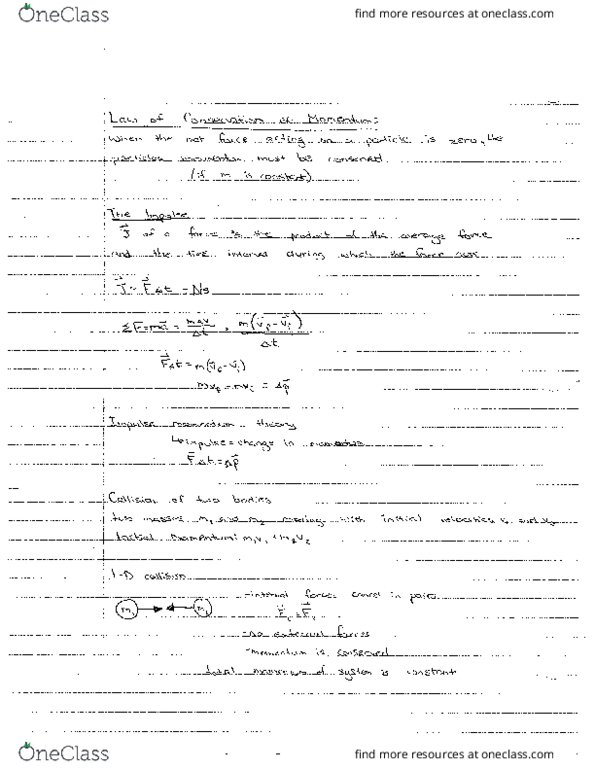 OneClass
find more resources at oneclass.com
Law of Conservation of Momentum:
when the net force acting on a particle is zero, the
particles momentum must be conserved
(if m is constant)
The Impulse
J of a force is the product of the average force
and the time interval during which the force
J = F Δt = Ns
ΣF=ma = mΔv/Δt , m(vf - vi)/Δt
FΔt = m(vf - vi)
mvf - mvi = Δp
Impulse momentum theory
↳ impulse = change in momentum
F Δt = Δp
Collision of two bodies
two masses m1 and m2 moving with initial velocities v1 and v2
Initial Momentum: m1v1 + m2v2
1-D collision
-internal forces cancel in pairs
m1
-no external forces
-momentum is conserved
total momentum of system is constant
OneClass
find more resources at oneclass.com